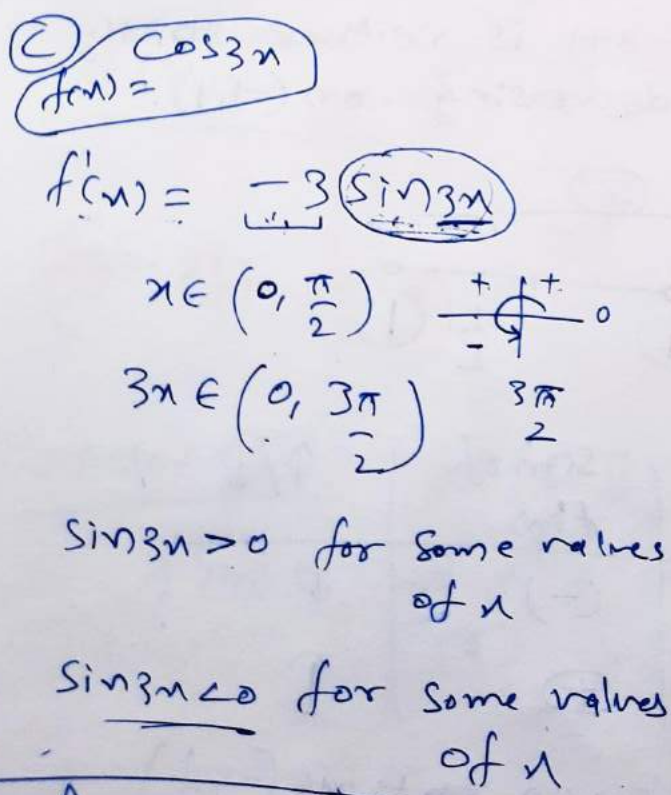 (C) cos3x
f(x) =
f'(x) = -3 sin3x
x ∈ (0, π/2) + + - 0
3x ∈ (0, 3π/2) 3π/2
sin3x > 0 for some values
of x
sin3x < 0 for some values
of x